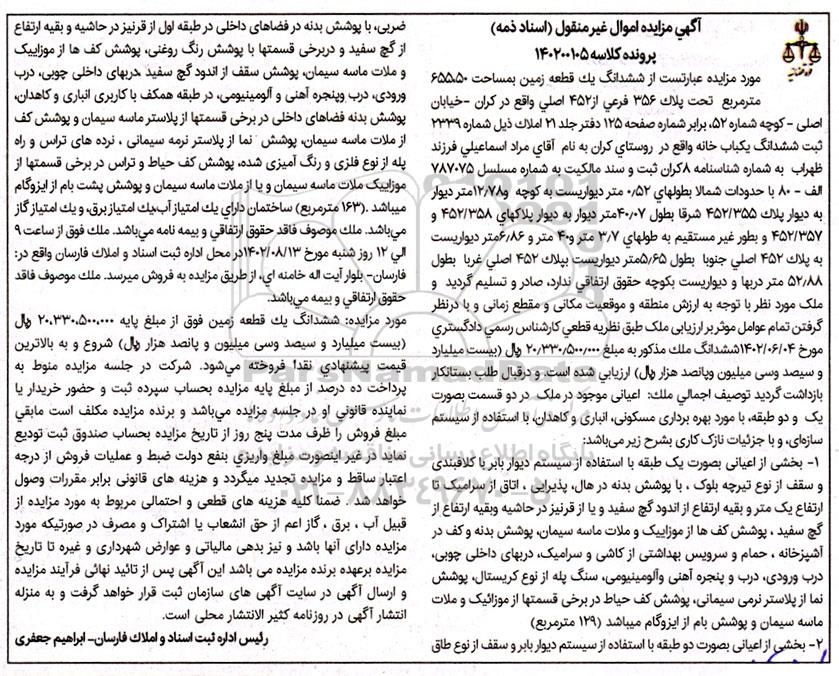 آگهي مزايده اموال غير منقول (اسناد ذمه)
پرونده کلاسه ۱۴۰۲۰۰۱۰۵
مورد مزايده عبارتست از ششدانگ يك قطعه زمين بمساحت ۶۵۵.۵۰
مترمربع تحت پلاك ۳۵۶ فرعي از ۴۵۲ اصلي واقع در کران -خيابان
اصلی - کوچه شماره ۵۲، برابر شماره صفحه ۱۲۵ دفتر جلد ۲۱ املاك ذيل شماره ۲۳۳۹
ثبت ششدانگ يكباب خانه واقع در روستای کران به نام آقای مراد اسماعيلی فرزند
ظهراب به شماره شناسنامه ۸ کران ثبت و سند مالکيت به شماره مسلسل ۷۸۷۰۷۵
الف - ۸۰ با حدودات شمالا بطولهای ۰/۵۲ متر ديواريست به کوچه و۱۲/۷۸متر ديوار
به ديوار پلاك ۴۵۲/۳۵۵ شرقا بطول ۴۰/۰۷متر ديوار به ديوار پلاكهاي ۴۵۲/۳۵۸ و
۴۵۲/۳۵۷ و بطور غير مستقيم به طولهای ۳/۷ متر و۴۰ متر و ۶/۸۶متر ديواريست
به پلاك ۴۵۲ اصلي جنوبا بطول ۵/۶۵متر ديواريست بپلاك ۴۵۲ اصلی غربا بطول
۵۲/۸۸ متر دربها و ديواريست بکوچه حقوق ارتفاقی ندارد، صادر و تسليم گرديد و
ملک مورد نظر با توجه به ارزش منطقه و موقعيت مکانی و مقطع زمانی و با درنظر
گرفتن تمام عوامل موثر بر ارزيابی ملک طبق نظريه قطعی کارشناس رسمی دادگستری
مورخ ۱۴۰۲/۰۶/۰۴ششدانگ ملك مذکور به مبلغ ۲۰/۳۳۰/۵۰۰/۰۰۰ ريال (بيست ميليارد
و سيصد وسی ميليون وپانصد هزار ريال) ارزيابي شده است. و درقبال طلب بستانکار
بازداشت گرديد توصيف اجمالي ملك: اعيانی موجود در ملک در دو قسمت بصورت
يک و دو طبقه، با مورد بهره برداری مسکونی، انباری و کاهدان، با استفاده از سيستم
سازه‌ای، و با جزئيات نازک کاری بشرح زير می‌باشد:
۱- بخشی از اعيانی بصورت يک طبقه با استفاده از سيستم ديوار بابر با کلافبندی
و سقف از نوع تيرچه بلوک ، با پوشش بدنه در هال، پذيرايی ، اتاق از سراميک تا
ارتفاع يک متر و بقيه ارتفاع از اندود گچ سفيد و يا از قرنيز در حاشيه وبقيه ارتفاع از
گچ سفيد ، پوشش کف ها از موزاييک و ملات ماسه سيمان، پوشش بدنه و کف در
آشپزخانه ، حمام و سرويس بهداشتی از کاشی و سراميک، دربهای داخلی چوبی،
درب ورودی، درب و پنجره آهنی وآلومينيومی، سنگ پله از نوع کريستال، پوشش
نما از پلاستر نرمی سيمانی، پوشش کف حياط در برخی قسمتها از موزائيک و ملات
ماسه سيمان و پوشش بام از ايزوگام ميباشد (۱۲۹ مترمربع)
۲- بخشی از اعيانی بصورت دو طبقه با استفاده از سيستم ديوار بابر و سقف از نوع طاق
ضربی، با پوشش بدنه در فضاهای داخلی در طبقه اول از قرنيز در حاشيه و بقيه ارتفاع
از گچ سفيد و دربرخی قسمتها با پوشش رنگ روغنی، پوشش کف ها از موزاييک
و ملات ماسه سيمان، پوشش سقف از اندود گچ سفيد ،دربهای داخلی چوبی، درب
ورودی، درب وپنجره آهنی و آلومينيومی، در طبقه همکف با کاربری انباری و کاهدان،
پوشش بدنه فضاهای داخلی در برخی قسمتها از پلاستر ماسه سيمان و پوشش کف
از ملات ماسه سيمان، پوشش نما از پلاستر نرمه سيمانی ، نرده های تراس و راه
پله از نوع فلزی و رنگ آميزی شده، پوشش کف حياط و تراس در برخی قسمتها از
موزاييک ملات ماسه سيمان و يا از ملات ماسه سيمان و پوشش پشت بام از ايزوگام
ميباشد .(۱۶۳ مترمربع) ساختمان داراي يك امتياز آب،يك امتياز برق، و يك امتياز گاز
مي‌باشد. ملك موصوف فاقد حقوق ارتفاقي و بيمه نامه می‌باشد. ملك فوق از ساعت ۹
الي ۱۲ روز شنبه مورخ ۱۴۰۲/۰۸/۱۳در محل اداره ثبت اسناد و املاك فارسان واقع در:
فارسان- بلوار آيت اله خامنه اي، از طريق مزايده به فروش ميرسد. ملك موصوف فاقد
حقوق ارتفاقي و بيمه می‌باشد.
مورد مزايده: ششدانگ يك قطعه زمين فوق از مبلغ پايه ۲۰.۳۳۰.۵۰۰.۰۰۰ ريال
(بيست ميليارد و سيصد وسی ميليون و پانصد هزار ريال) شروع و به بالاترين
قيمت پيشنهادي نقدا فروخته می‌شود. شرکت در جلسه مزايده منوط به
پرداخت ده درصد از مبلغ پايه مزايده بحساب سپرده ثبت و حضور خريدار يا
نماينده قانوني او در جلسه مزايده می‌باشد و برنده مزايده مکلف است مابقي
مبلغ فروش را ظرف مدت پنج روز از تاريخ مزايده بحساب صندوق ثبت توديع
نمايد در غير اينصورت مبلغ واريزي بنفع دولت ضبط و عمليات فروش از درجه
اعتبار ساقط و مزايده تجديد ميگردد و هزينه های قانونی برابر مقررات وصول
خواهد شد . ضمنا کليه هزينه های قطعی و احتمالی مربوط به مورد مزايده از
قبيل آب ، برق ، گاز اعم از حق انشعاب يا اشتراک و مصرف در صورتيکه مورد
مزايده دارای آنها باشد و نيز بدهی مالياتی و عوارض شهرداری و غيره تا تاريخ
مزايده برعهده برنده مزايده می باشد اين آگهی پس از تائيد نهائی فرآيند مزايده
و ارسال آگهی در سايت آگهی های سازمان ثبت قرار خواهد گرفت و به منزله
انتشار آگهی در روزنامه کثير الانتشار محلی است.
رئيس اداره ثبت اسناد و املاك فارسان- ابراهيم جعفری
ParsNamadData
پايگاه اطلاع رسانی
۰۲۱-۸۸۳۴۹۶۷۰-۵